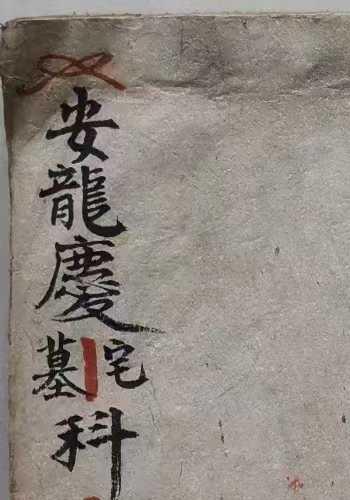 安龍慶宅墓科